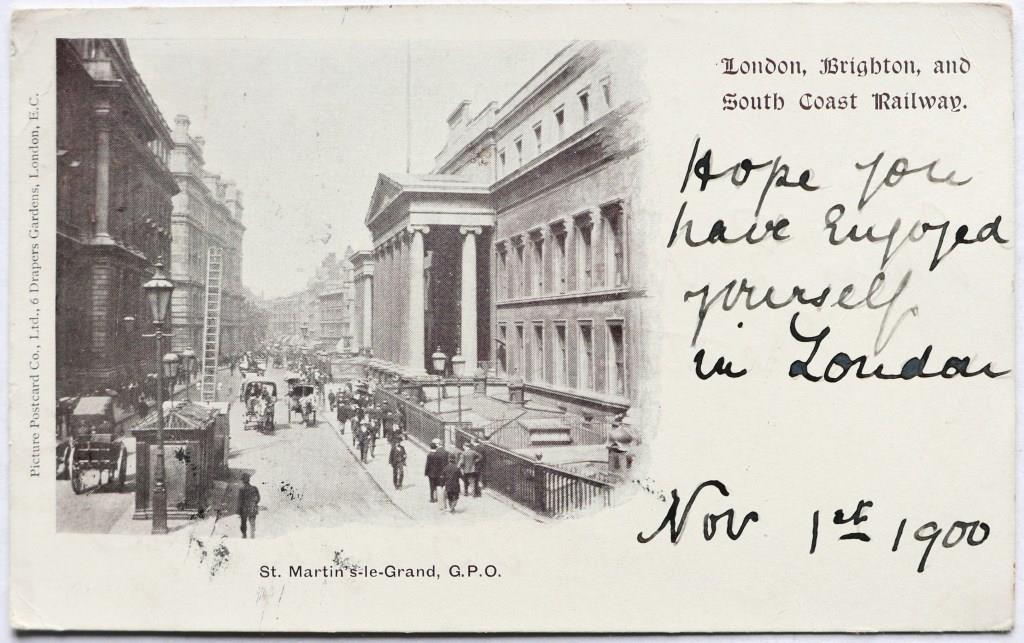 London, Brighton, and
South Coast Railway.
Hope you
have Enjoyed
yourself
in London
Nov 1st 1900
St. Martin's-le-Grand, G.P.O.
Picture Postcard Co., Ltd., 6 Drapers Gardens, London, E.C.